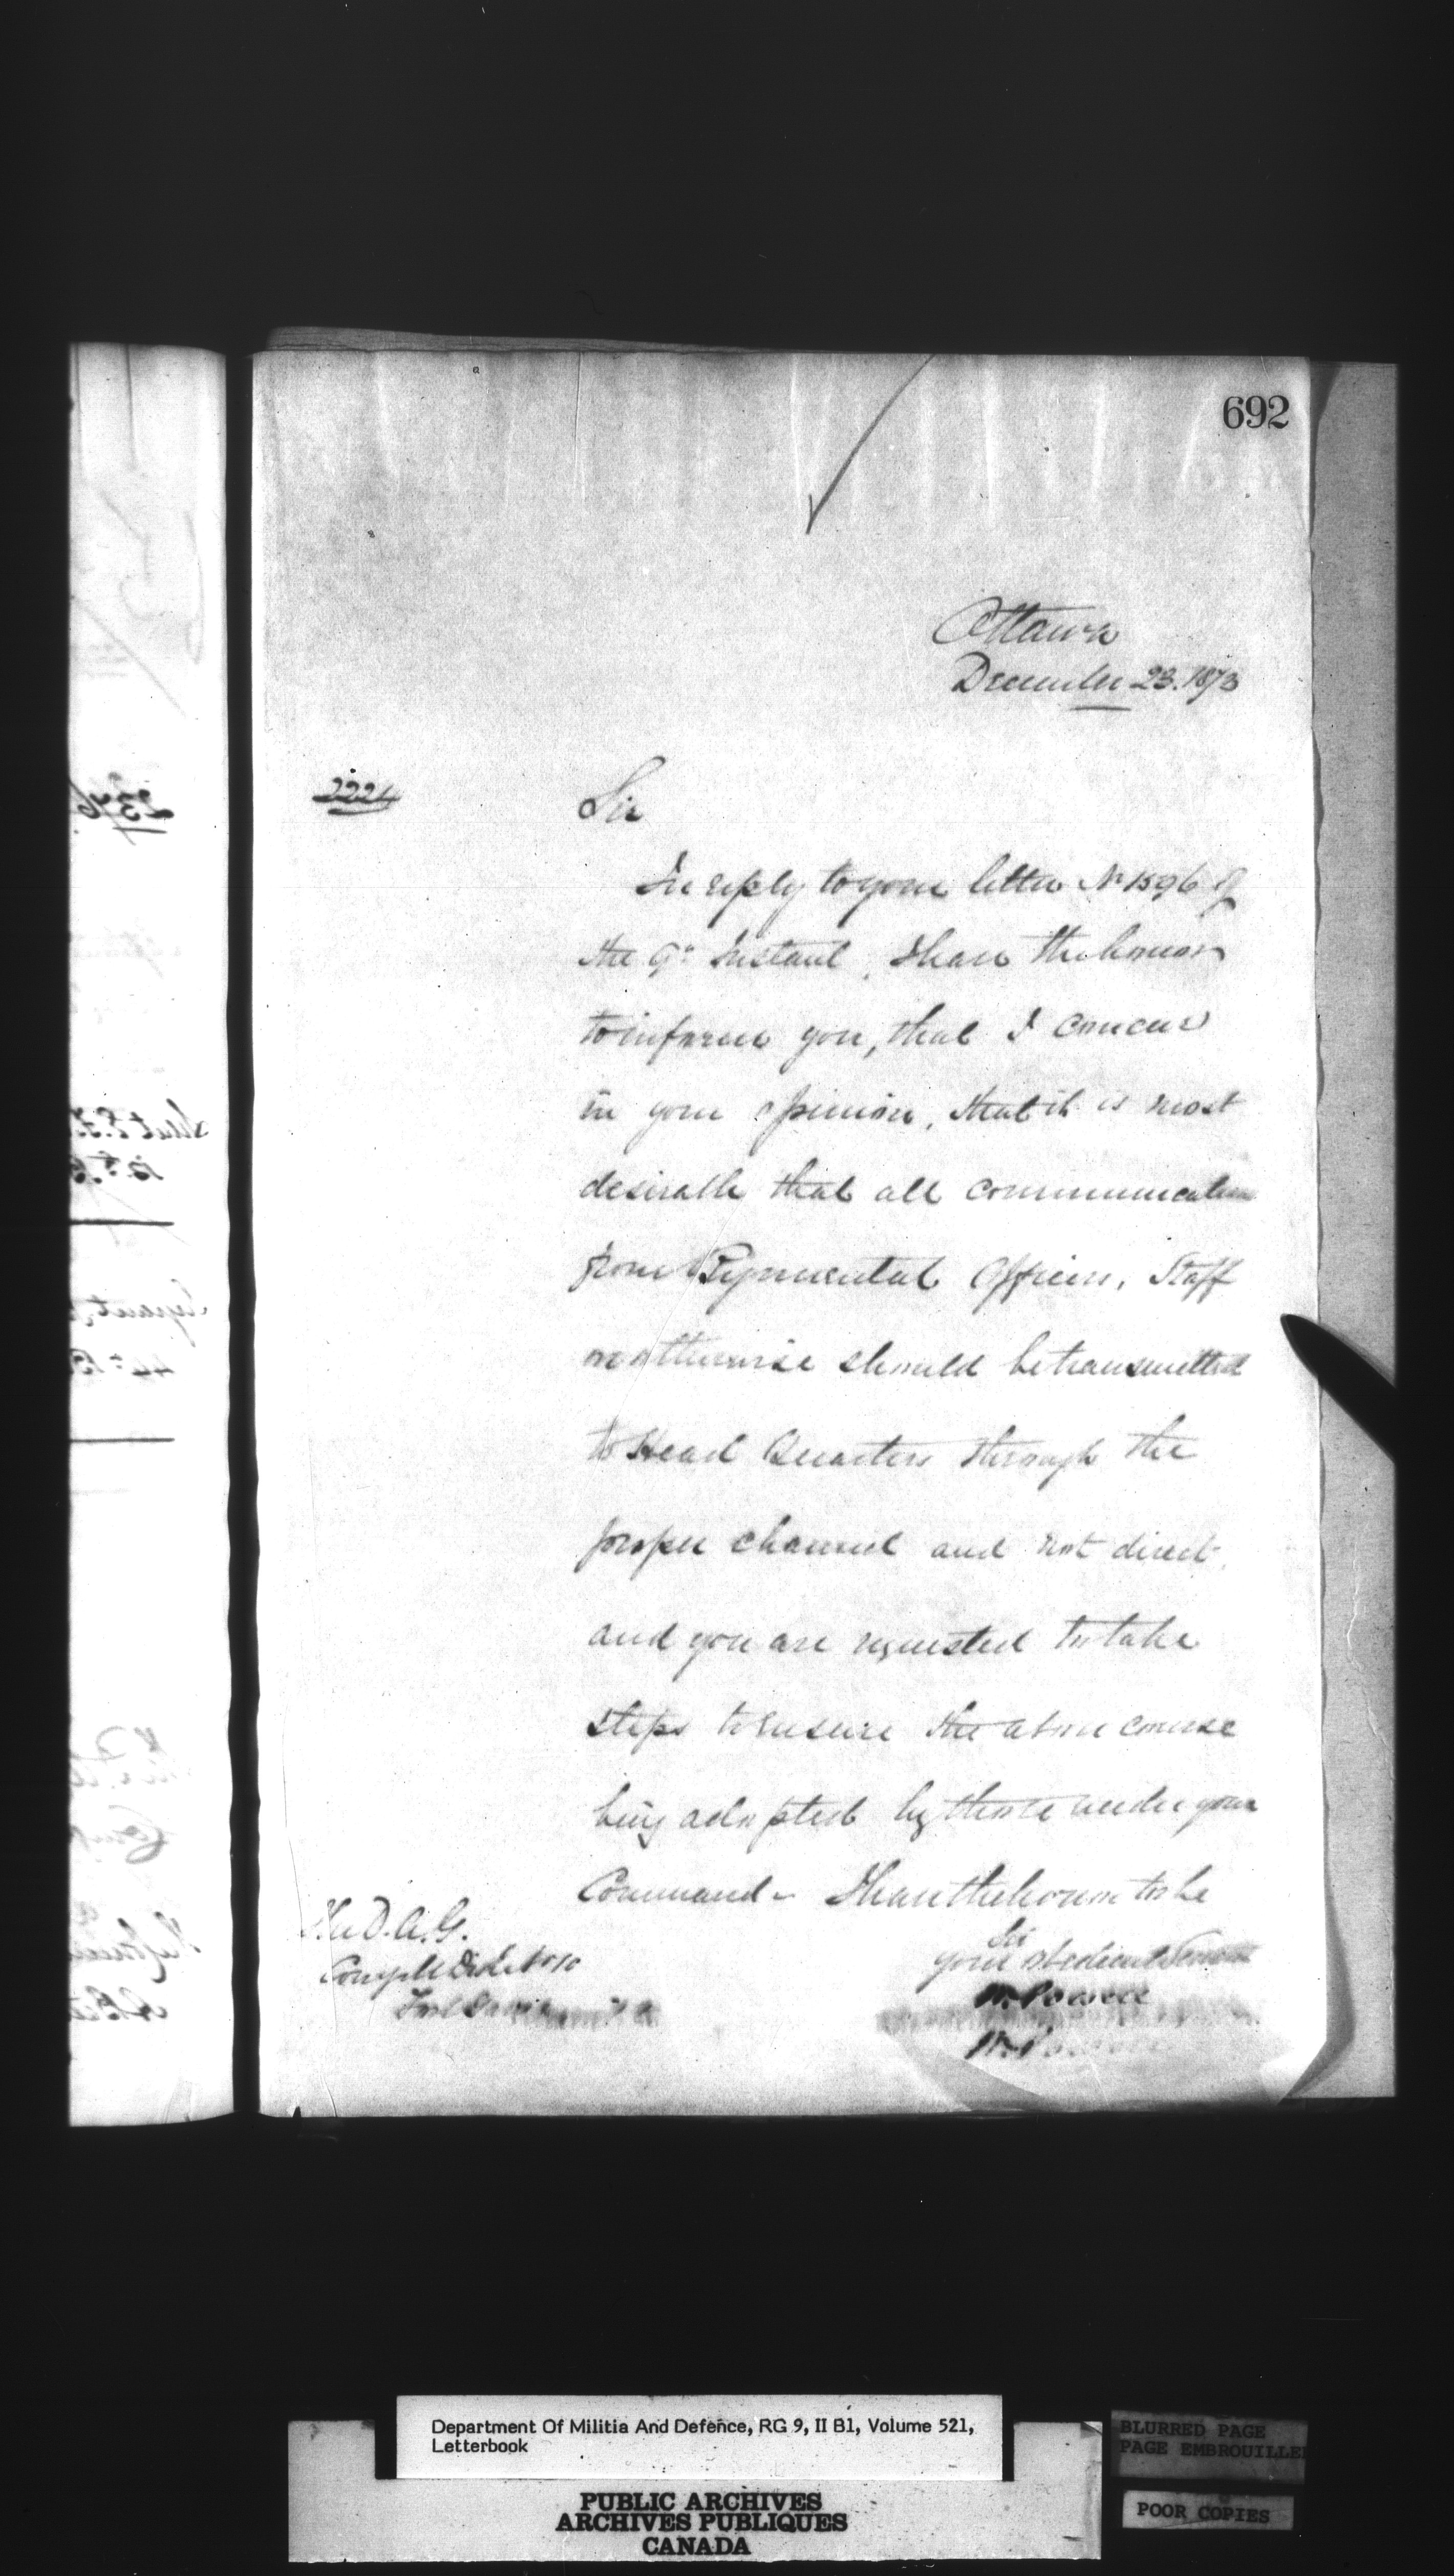 692
Ottawa
December 23. 1873
2224
Sir
In reply to your letter No 1596 of
the 9th Instant, I have the honor
to inform you, that I concur
in your opinion, that it is most
desirable that all communication
from Regimental Officers, Staff
or otherwise should be transmitted
to Head Quarters through the
proper channel and not direct,
and you are requested to take
steps to ensure the above course
being adopted by those under your
Command - I have the honor to be
Sir
your obedient Servant
W. Powell
W. Powell
The D.A.G.
Comg Mil Dist No 10
Fort
Department Of Militia And Defence, RG 9, II B1, Volume 521,
Letterbook
PUBLIC ARCHIVES
ARCHIVES PUBLIQUES
CANADA
BLURRED PAGE
PAGE EMBROUILLEE
POOR COPIES